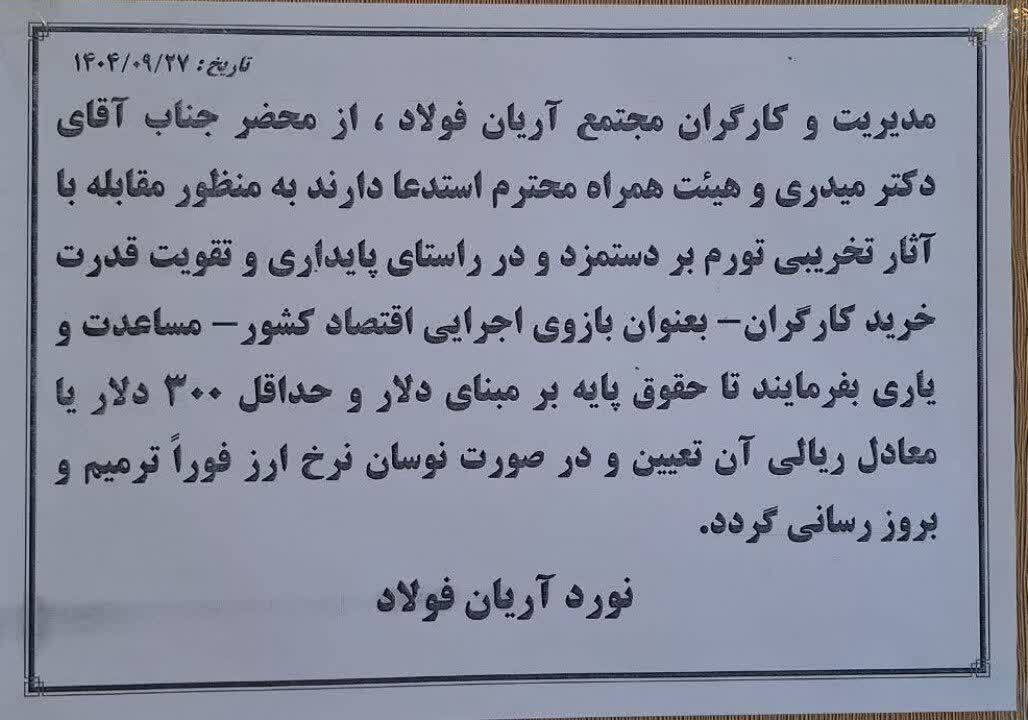 تاریخ: ۱۴۰۴/۰۹/۲۷
مدیریت و کارگران مجتمع آریان فولاد ، از محضر جناب آقای
دکتر میدری و هیئت همراه محترم استدعا دارند به منظور مقابله با
آثار تخریبی تورم بر دستمزد و در راستای پایداری و تقویت قدرت
خرید کارگران– بعنوان بازوی اجرایی اقتصاد کشور– مساعدت و
یاری بفرمایند تا حقوق پایه بر مبنای دلار و حداقل ۳۰۰ دلار یا
معادل ریالی آن تعیین و در صورت نوسان نرخ ارز فوراً ترمیم و
بروز رسانی گردد.
نورد آریان فولاد